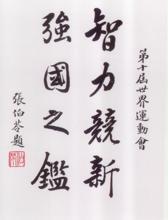 第十屆世界運動會
智力競新
強國之鑑
張伯苓題